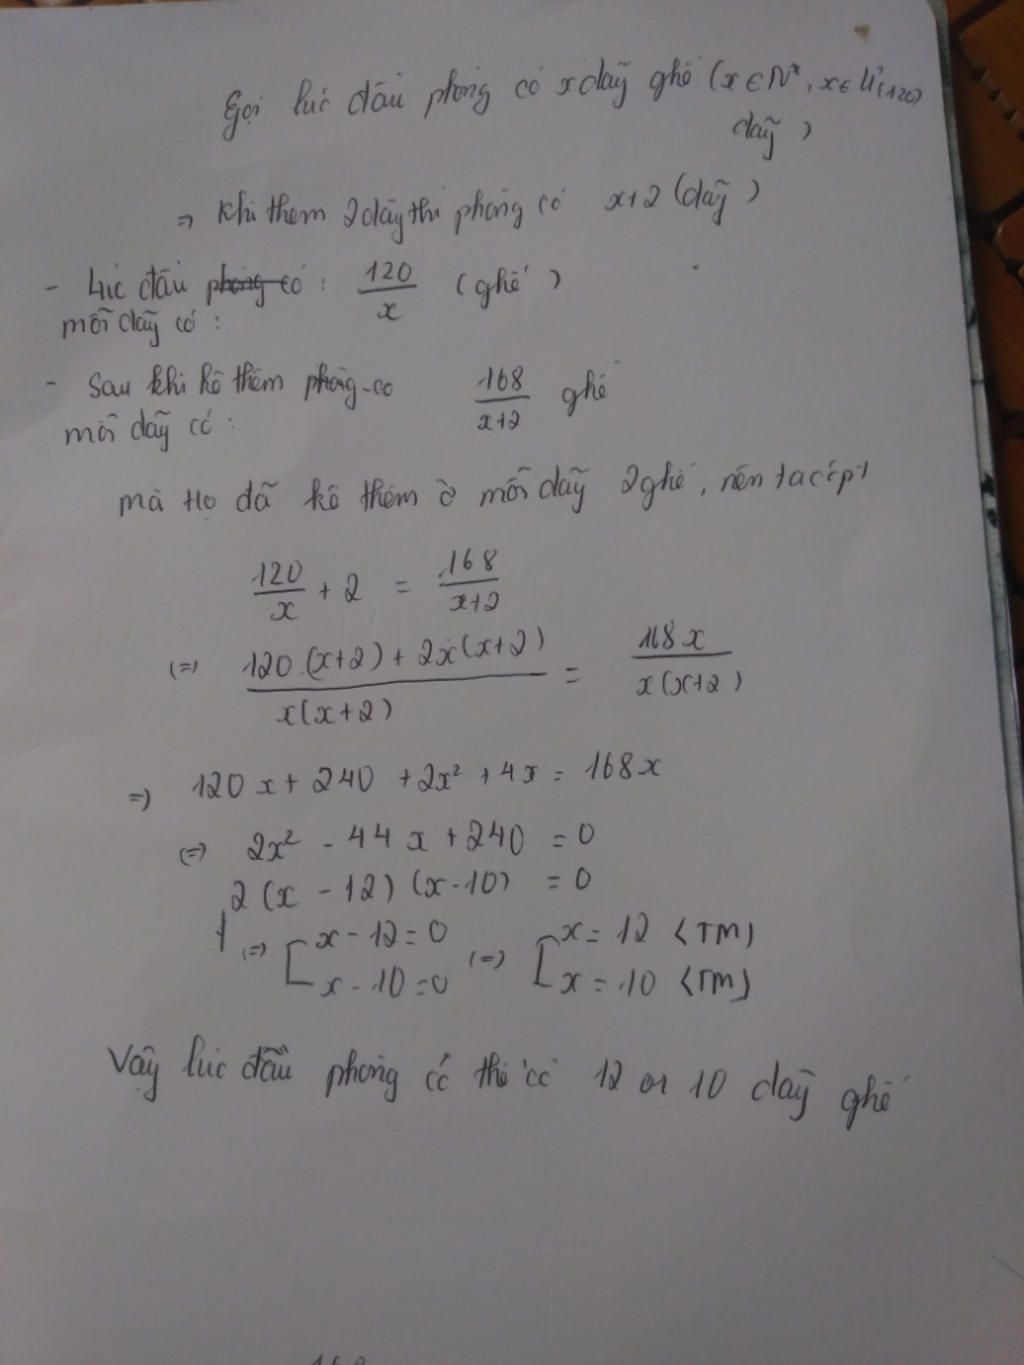 Gọi lúc đầu phòng có x dãy ghế (x ∈ N*, x ∈ Ư(120)
dãy )
=> Khi thêm 2 dãy thì phòng có x+2 (dãy)
- Lúc đầu phòng có : 120/x (ghế)
mỗi dãy có :
- Sau khi kê thêm phòng có 168/(x+2) ghế
mỗi dãy có :
mà họ đã kê thêm ở mỗi dãy 2 ghế, nên ta có pt
120/x + 2 = 168/(x+2)
(=) (120.(x+2) + 2x(x+2))/(x(x+2)) = 168x/(x(x+2))
=) 120x + 240 + 2x² + 4x = 168x
(=) 2x² - 44x + 240 = 0
2(x - 12)(x - 10) = 0
(=) [ x - 12 = 0 (=) [ x = 12 (TM)
x - 10 = 0 x = 10 (TM)
Vậy lúc đầu phòng có thể có 12 or 10 dãy ghế